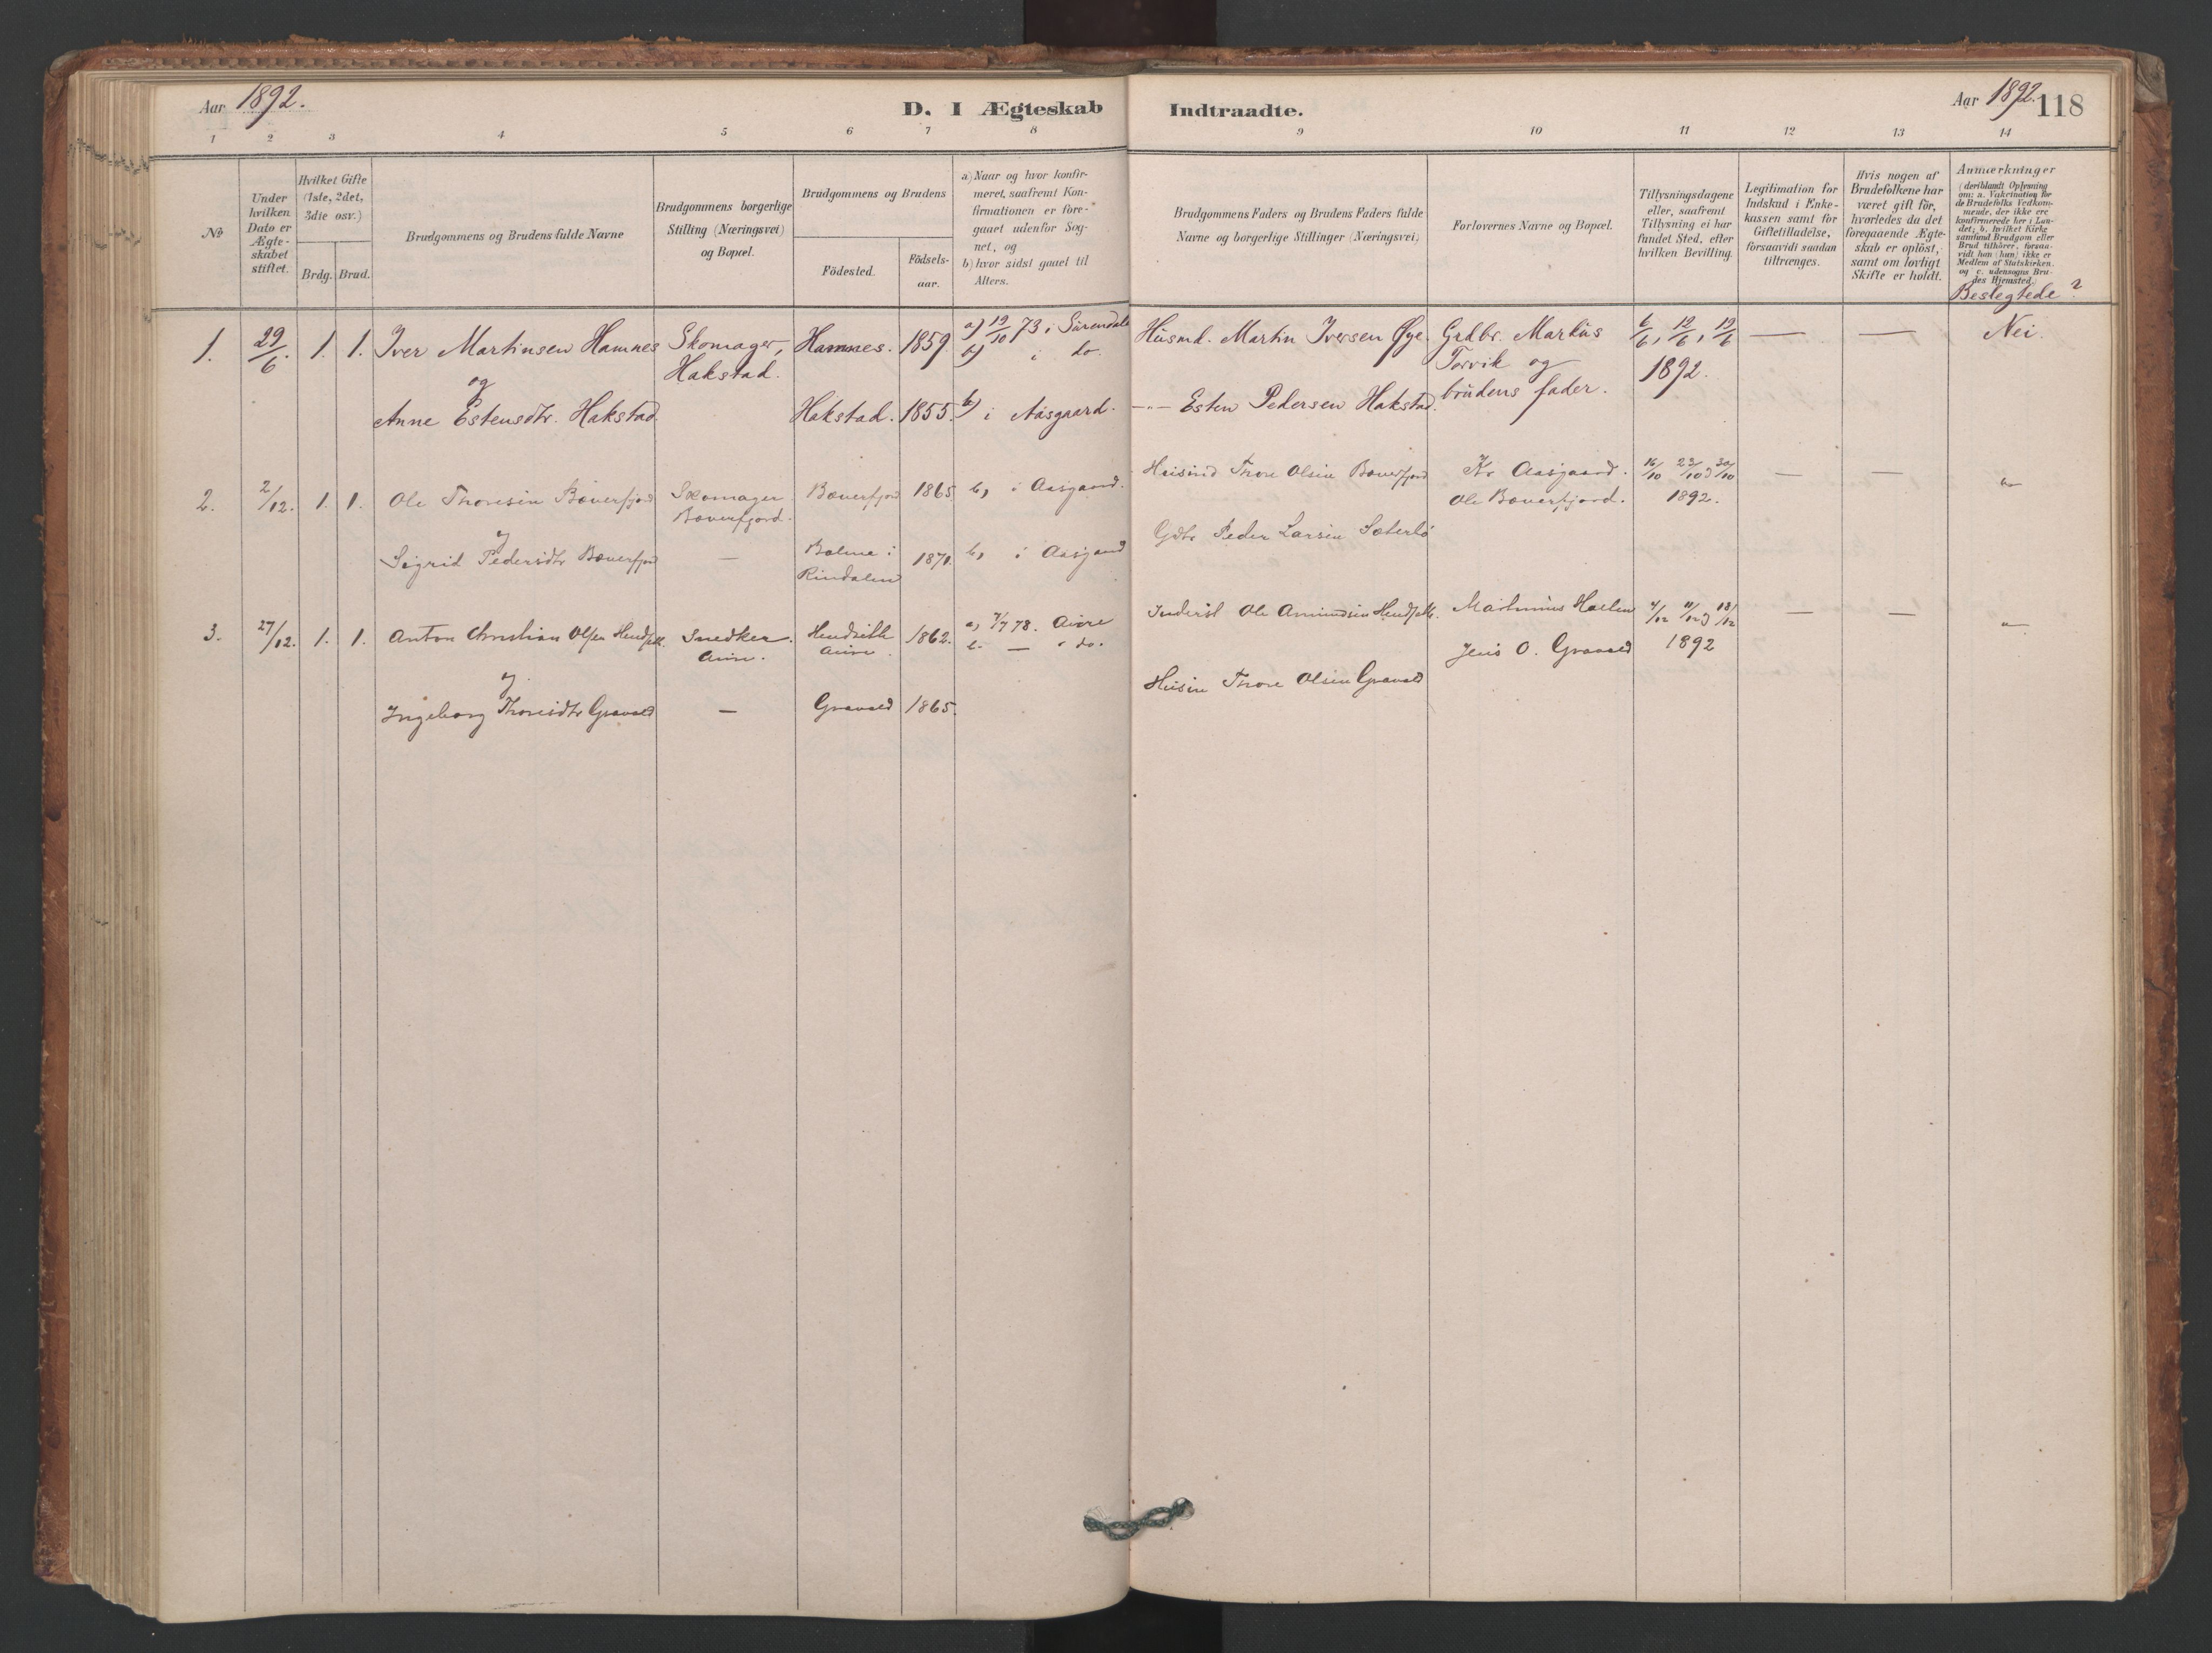 Aar 1892.
D. I Ægteskab Indtraadte.
Aar 1892. 118
1 2 3 4 5 6 7 8 9 10 11 12 13 14
No
Under hvilken Dato er Ægte-skabet stiftet.
Hvilket Gifte (1ste, 2det, 3die osv.)
Brdg. Brud.
Brudgommens og Brudens fulde Navne
Brudgommens borgerlige Stilling (Næringsvei) og Bopæl.
Brudgommens og Brudens
Födested.
Födsels-aar.
a) Naar og hvor konfir-meret, saafremt Kon-firmationen er fore-gaaet udenfor Sog-net, og
b) hvor sidst gaaet til Alters.
Brudgommens Faders og Brudens Faders fulde Navne og borgerlige Stillinger (Næringsvei)
Forlovernes Navne og Bopæl.
Tillysningsdagene eller, saafremt Tillysning ei har fundet Sted, efter hvilken Bevilling.
Legitimation for Indskud i Enke-kassen samt for Giftetilladelse, forsaavidt saadan tiltrænges.
Hvis nogen af Brudefolkene har været gift för, hvorledes da det foregaaende Ægte-skab er oplöst, samt om lovligt Skifte er holdt.
Anmærkninger
(deriblandt Oplysning om: a. Vakcination for de Brudefolks Vedkom-mende, der ikke ere konfirmerede her i Lan-det; b. hvilket Kirke samfund Brudgom eller Brud tilhörer, forsaa-vidt han (hun) ikke er Medlem af Statskirken. og c. udensogns Bru-des Hjemsted.
Beslegtede?
1. 29/6. 1. 1. Iver Martinsen Hamnes Skomager, Hamnes. 1859. a) 19/10 73 i Surendale Husmd. Martin Iversen Øye. Grdbr. Markus 6/6, 12/6, 19/6 — — Nei.
Hakstad. b) i do. Torvik og 1892.
og
Anne Estensdtr. Hakstad. Hakstad. 1855. b) i Aasgaard. -"- Esten Pedersen Hakstad. brudens fader.
2. 2/12. 1. 1. Ole Thoresen Bæverfjord Skomager Bæverfjord 1865 b, i Aasgaard. Husmd Thore Olsen Bæverfjord Kr Aasgaard. 16/10 23/10 30/10 — — "
Bæverfjord. Ole Bæverfjord. 1892.
og
Sigrid Pedersdtr Bæverfjord — Bolme i Rindalen 1870. b, i Aasgaard Gdbr Peder Larsen Sæterbø
3. 27/12. 1. 1. Anton Christian Olsen Snedker. 1862. a, 7/7 78. Aure Inderst Ole Amundsen 4/12 11/12 18/12 — — "
Aure. Aure. b. — i do. Jens O. Gravald 1892
og
Ingeborg Thoresdtr Gravald — Gravald 1865. Husm Thore Olsen Gravald